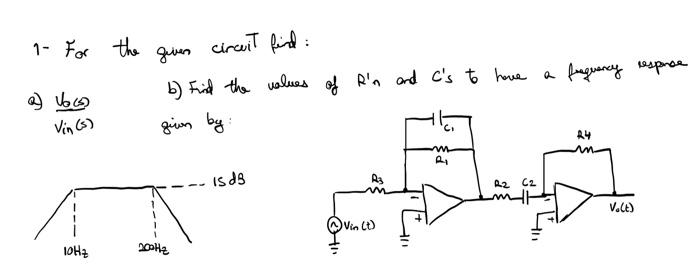 1- For the given circuit find :
a) Vo(s) / Vin(s)
b) Find the values of R's and C's to have a frequency response given by :
15dB
10Hz
200Hz
C1
R1
R3
Vin(t)
-
+
R2
C2
R4
-
+
Vo(t)